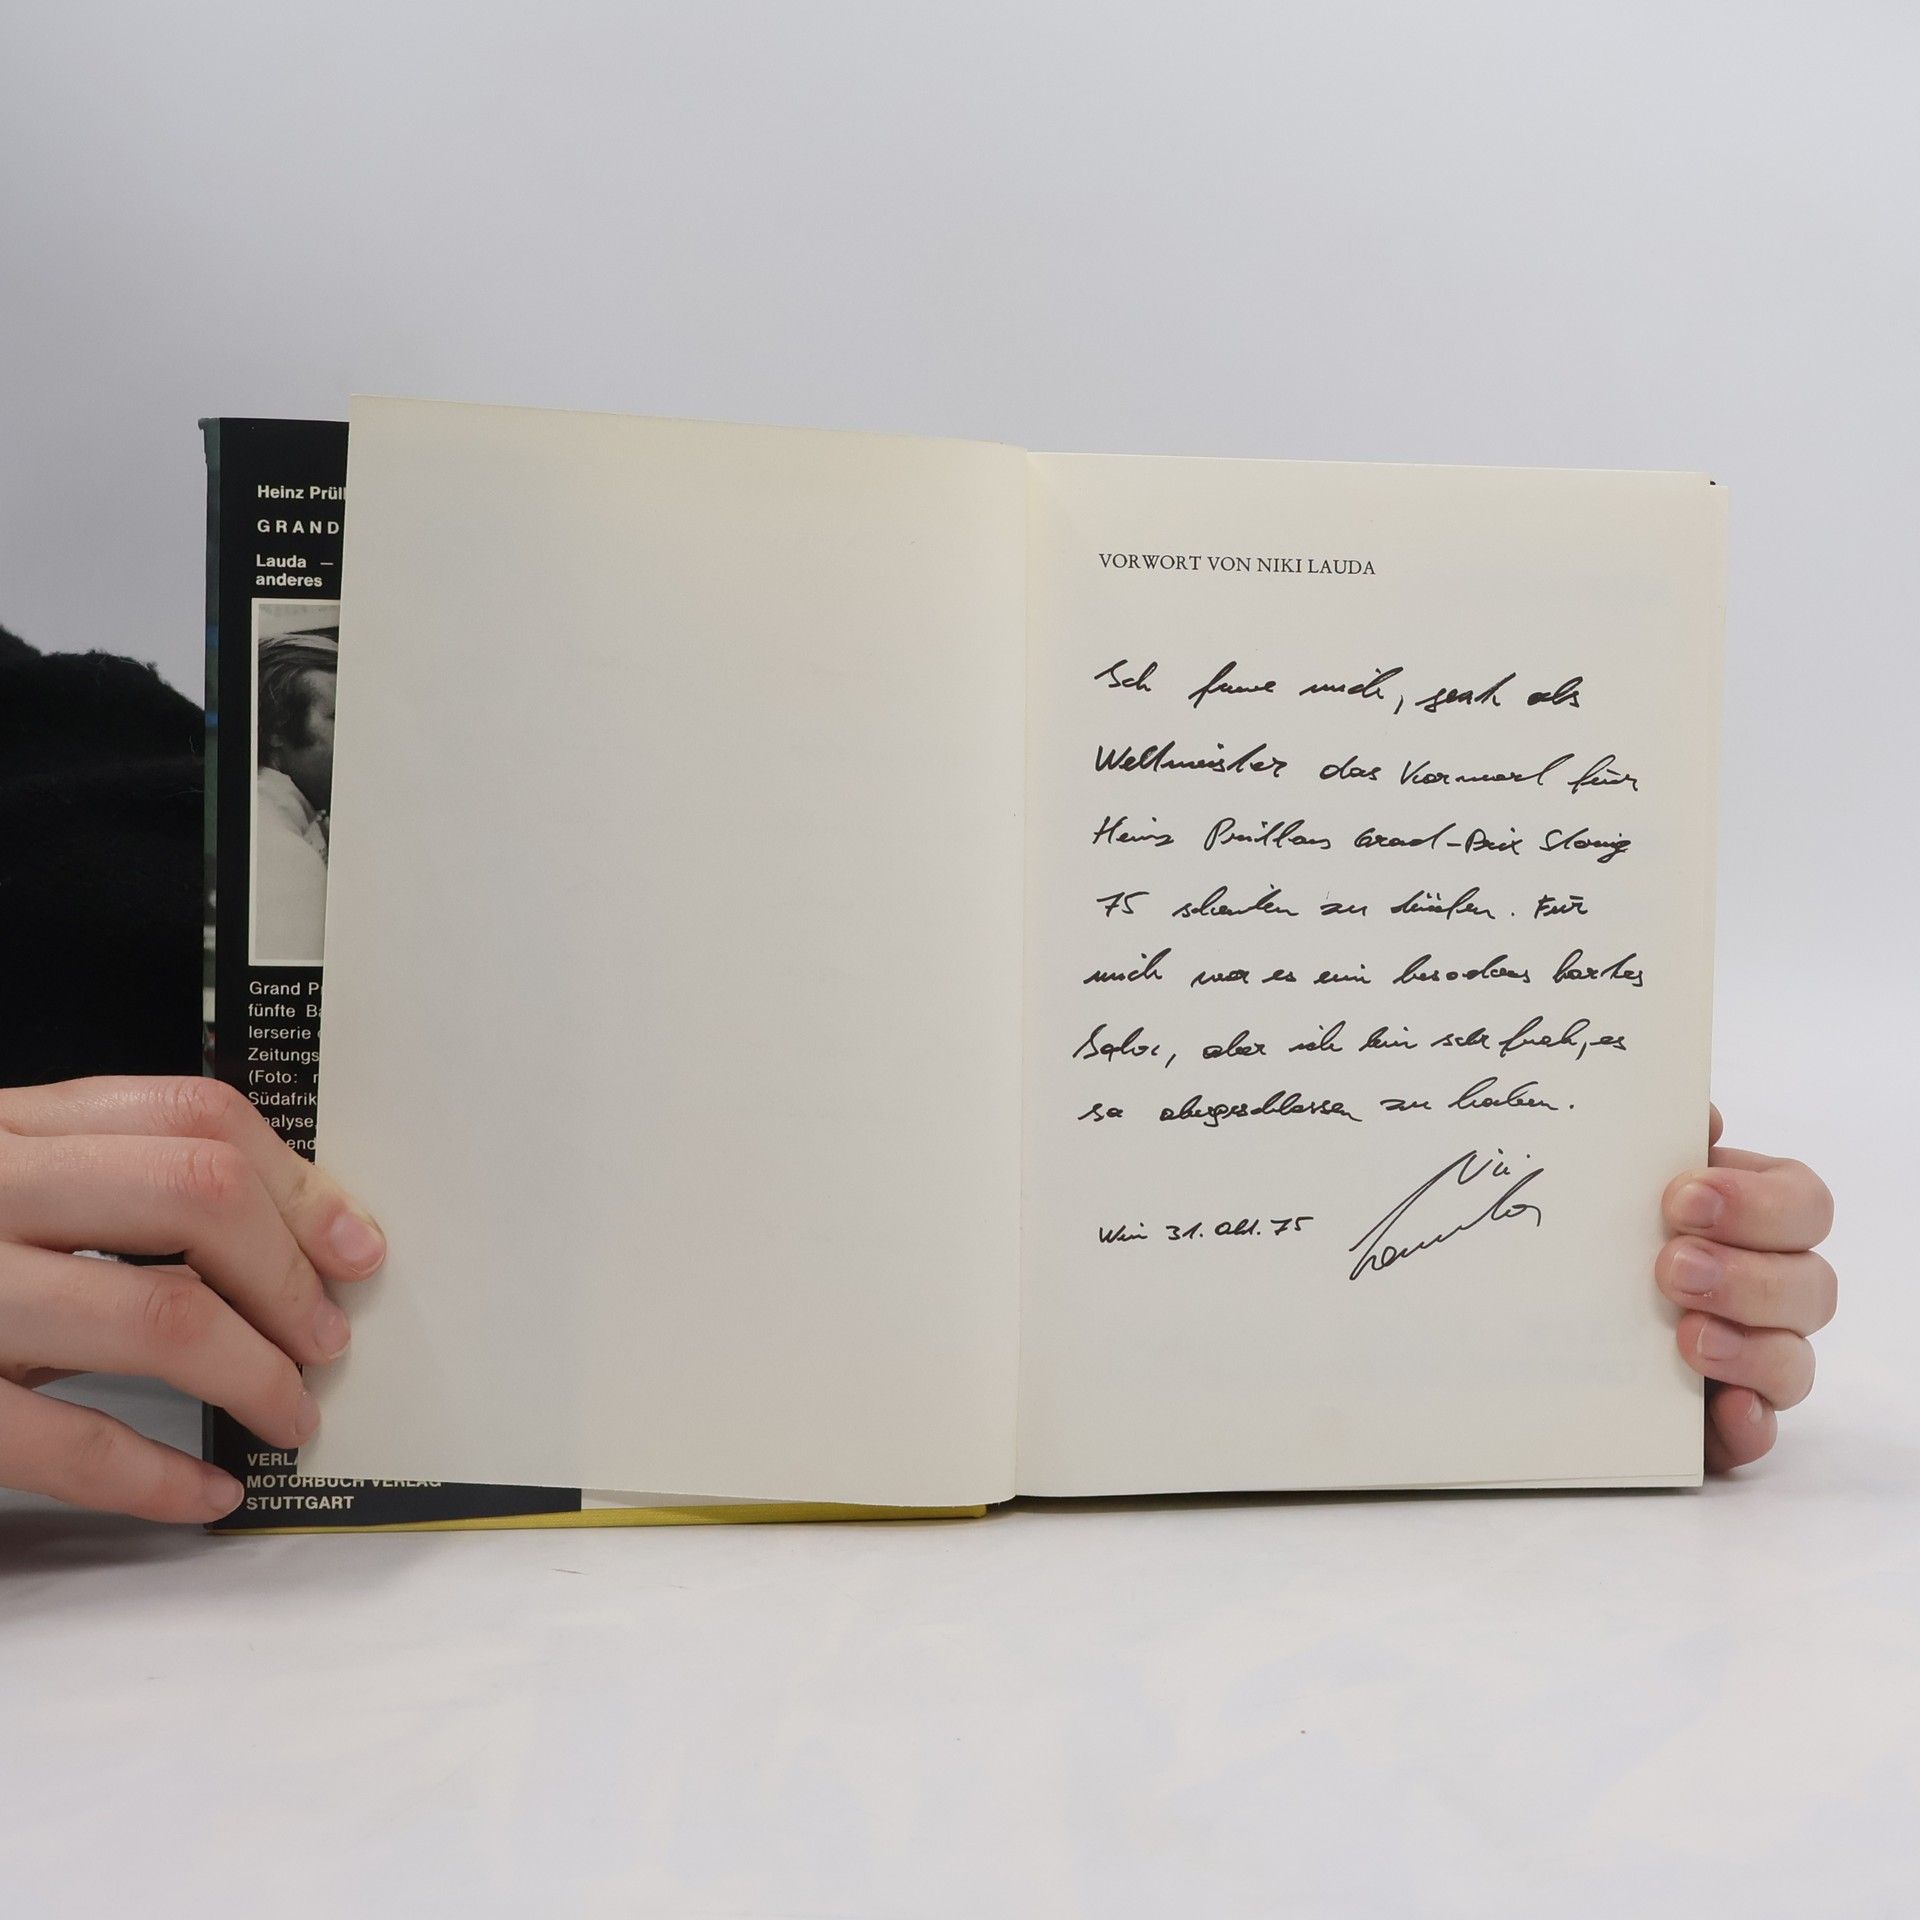 Heinz Prüll
GRAND
Lauda —
anderes
Grand P
fünfte Ba
lerserie
Zeitungs
(Foto:
Südafrik
nalyse,
end
VERLA
MOTORBUCH VERLAG
STUTTGART
VORWORT VON NIKI LAUDA
Ich freue mich, jetzt als
Weltmeister das Vorwort für
Heinz Prüllers Grand-Prix Story
75 schreiben zu dürfen. Für
mich war es ein besonders hartes
Jahr, aber ich bin sehr froh, es
so abgeschlossen zu haben.
Wien 31. Okt. 75
Niki
Lauda